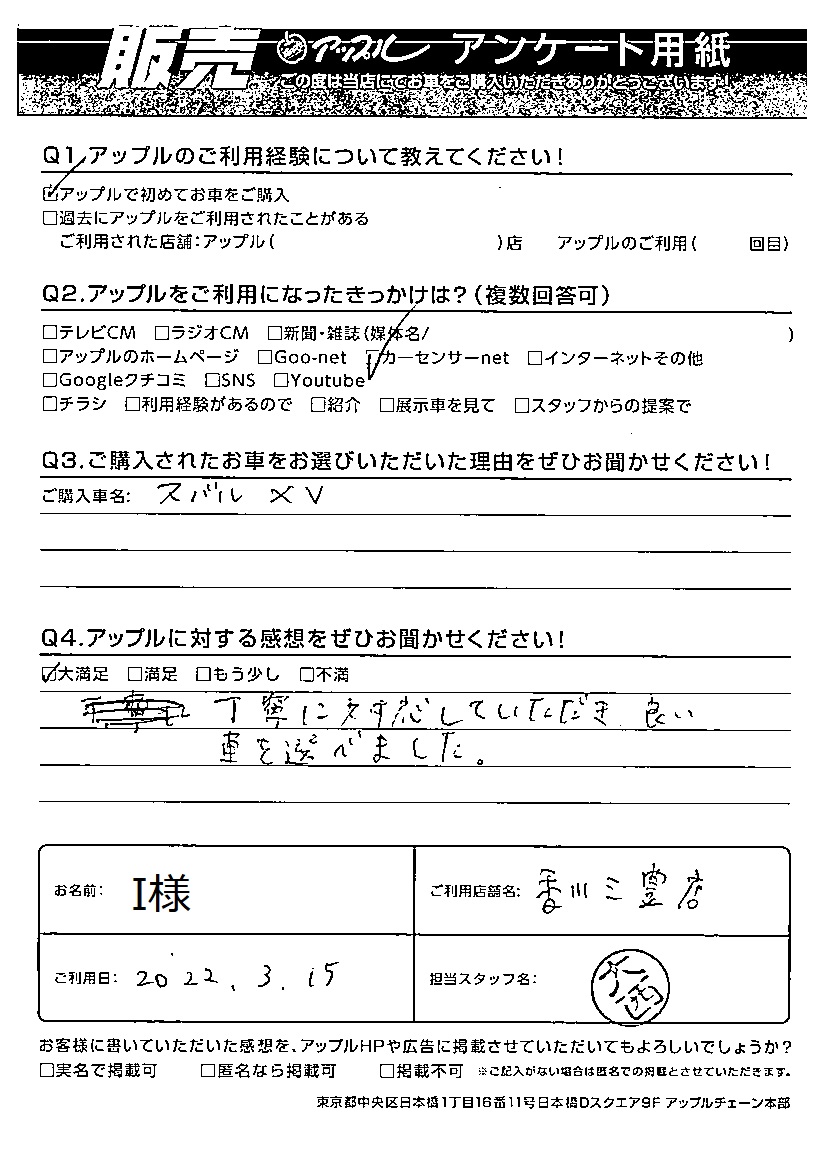 販売 アップル アンケート用紙
この度は当店にてお車をご購入いただきありがとうございます!
Q1.アップルのご利用経験について教えてください!
☑アップルで初めてお車をご購入
□過去にアップルをご利用されたことがある
ご利用された店舗:アップル( )店 アップルのご利用( 回目)
Q2.アップルをご利用になったきっかけは?(複数回答可)
□テレビCM □ラジオCM □新聞・雑誌(媒体名/ )
□アップルのホームページ □Goo-net ☑カーセンサーnet □インターネットその他
□Googleクチコミ □SNS □Youtube
□チラシ □利用経験があるので □紹介 □展示車を見て □スタッフからの提案で
Q3.ご購入されたお車をお選びいただいた理由をぜひお聞かせください!
ご購入車名: スバル XV
Q4.アップルに対する感想をぜひお聞かせください!
☑大満足 □満足 □もう少し □不満
丁寧に対応していただき 良い
車を選べました。
お名前: I様 ご利用店舗名: 香川三豊店
ご利用日: 2022.3.15 担当スタッフ名:
お客様に書いていただいた感想を、アップルHPや広告に掲載させていただいてもよろしいでしょうか?
□実名で掲載可 □匿名なら掲載可 □掲載不可 ※ご記入がない場合は匿名での掲載とさせていただきます。
東京都中央区日本橋1丁目16番11号日本橋Dスクエア9F アップルチェーン本部